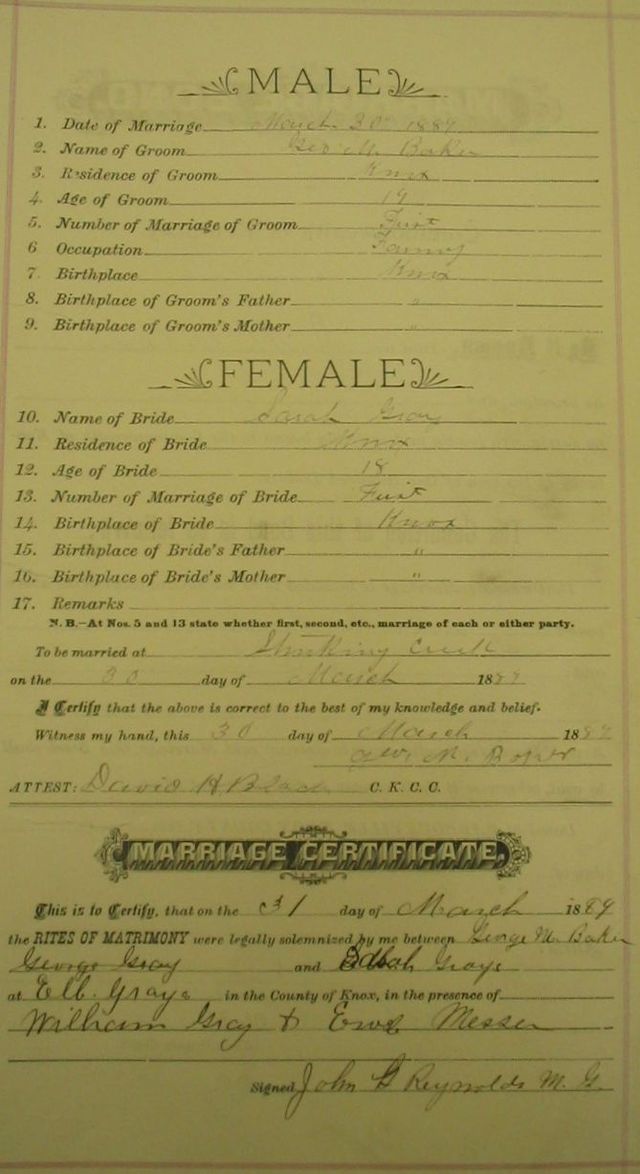 MALE
1. Date of Marriage March 30 1889
2. Name of Groom Geo M. Baker
3. Residence of Groom Knox
4. Age of Groom 19
5. Number of Marriage of Groom First
6 Occupation Farmng
7. Birthplace Knox
8. Birthplace of Groom's Father "
9. Birthplace of Groom's Mother "
FEMALE
10. Name of Bride Sarah Gray
11. Residence of Bride Knox
12. Age of Bride 18
13. Number of Marriage of Bride First
14. Birthplace of Bride Knox
15. Birthplace of Bride's Father "
16. Birthplace of Bride's Mother "
17. Remarks
N. B.—At Nos. 5 and 13 state whether first, second, etc., marriage of each or either party.
To be married at Stinking Creek
on the 30 day of March 1889
I Certify that the above is correct to the best of my knowledge and belief.
Witness my hand, this 30 day of March 1889
Geo. M. Baker
ATTEST: David H. Black C. K. C. C.
MARRIAGE CERTIFICATE.
This is to Certify, that on the 31 day of March 1889
the RITES OF MATRIMONY were legally solemnized by me between George M Baker
George Gray and Graye
at Elb. Graye in the County of Knox, in the presence of
William Gray & Messer
Signed John G Reynolds M. G.